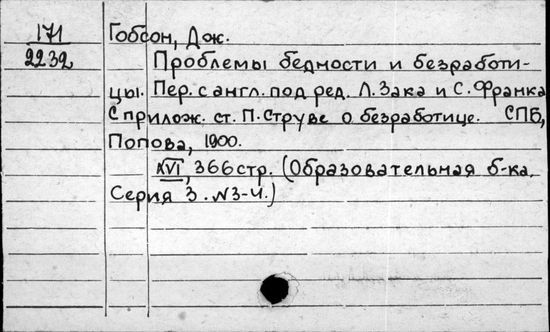 171 Гобсон, Дж.
2232 Проблемы бедности и безработи-
цы. Пер. с англ. под ред. Л. Зака и С. Франка
С прилож. ст. П. Струве о безработице. СПБ,
Попова, 1900.
XVI, 366 стр. (Образовательная б-ка,
Серия 3. №3-4.)